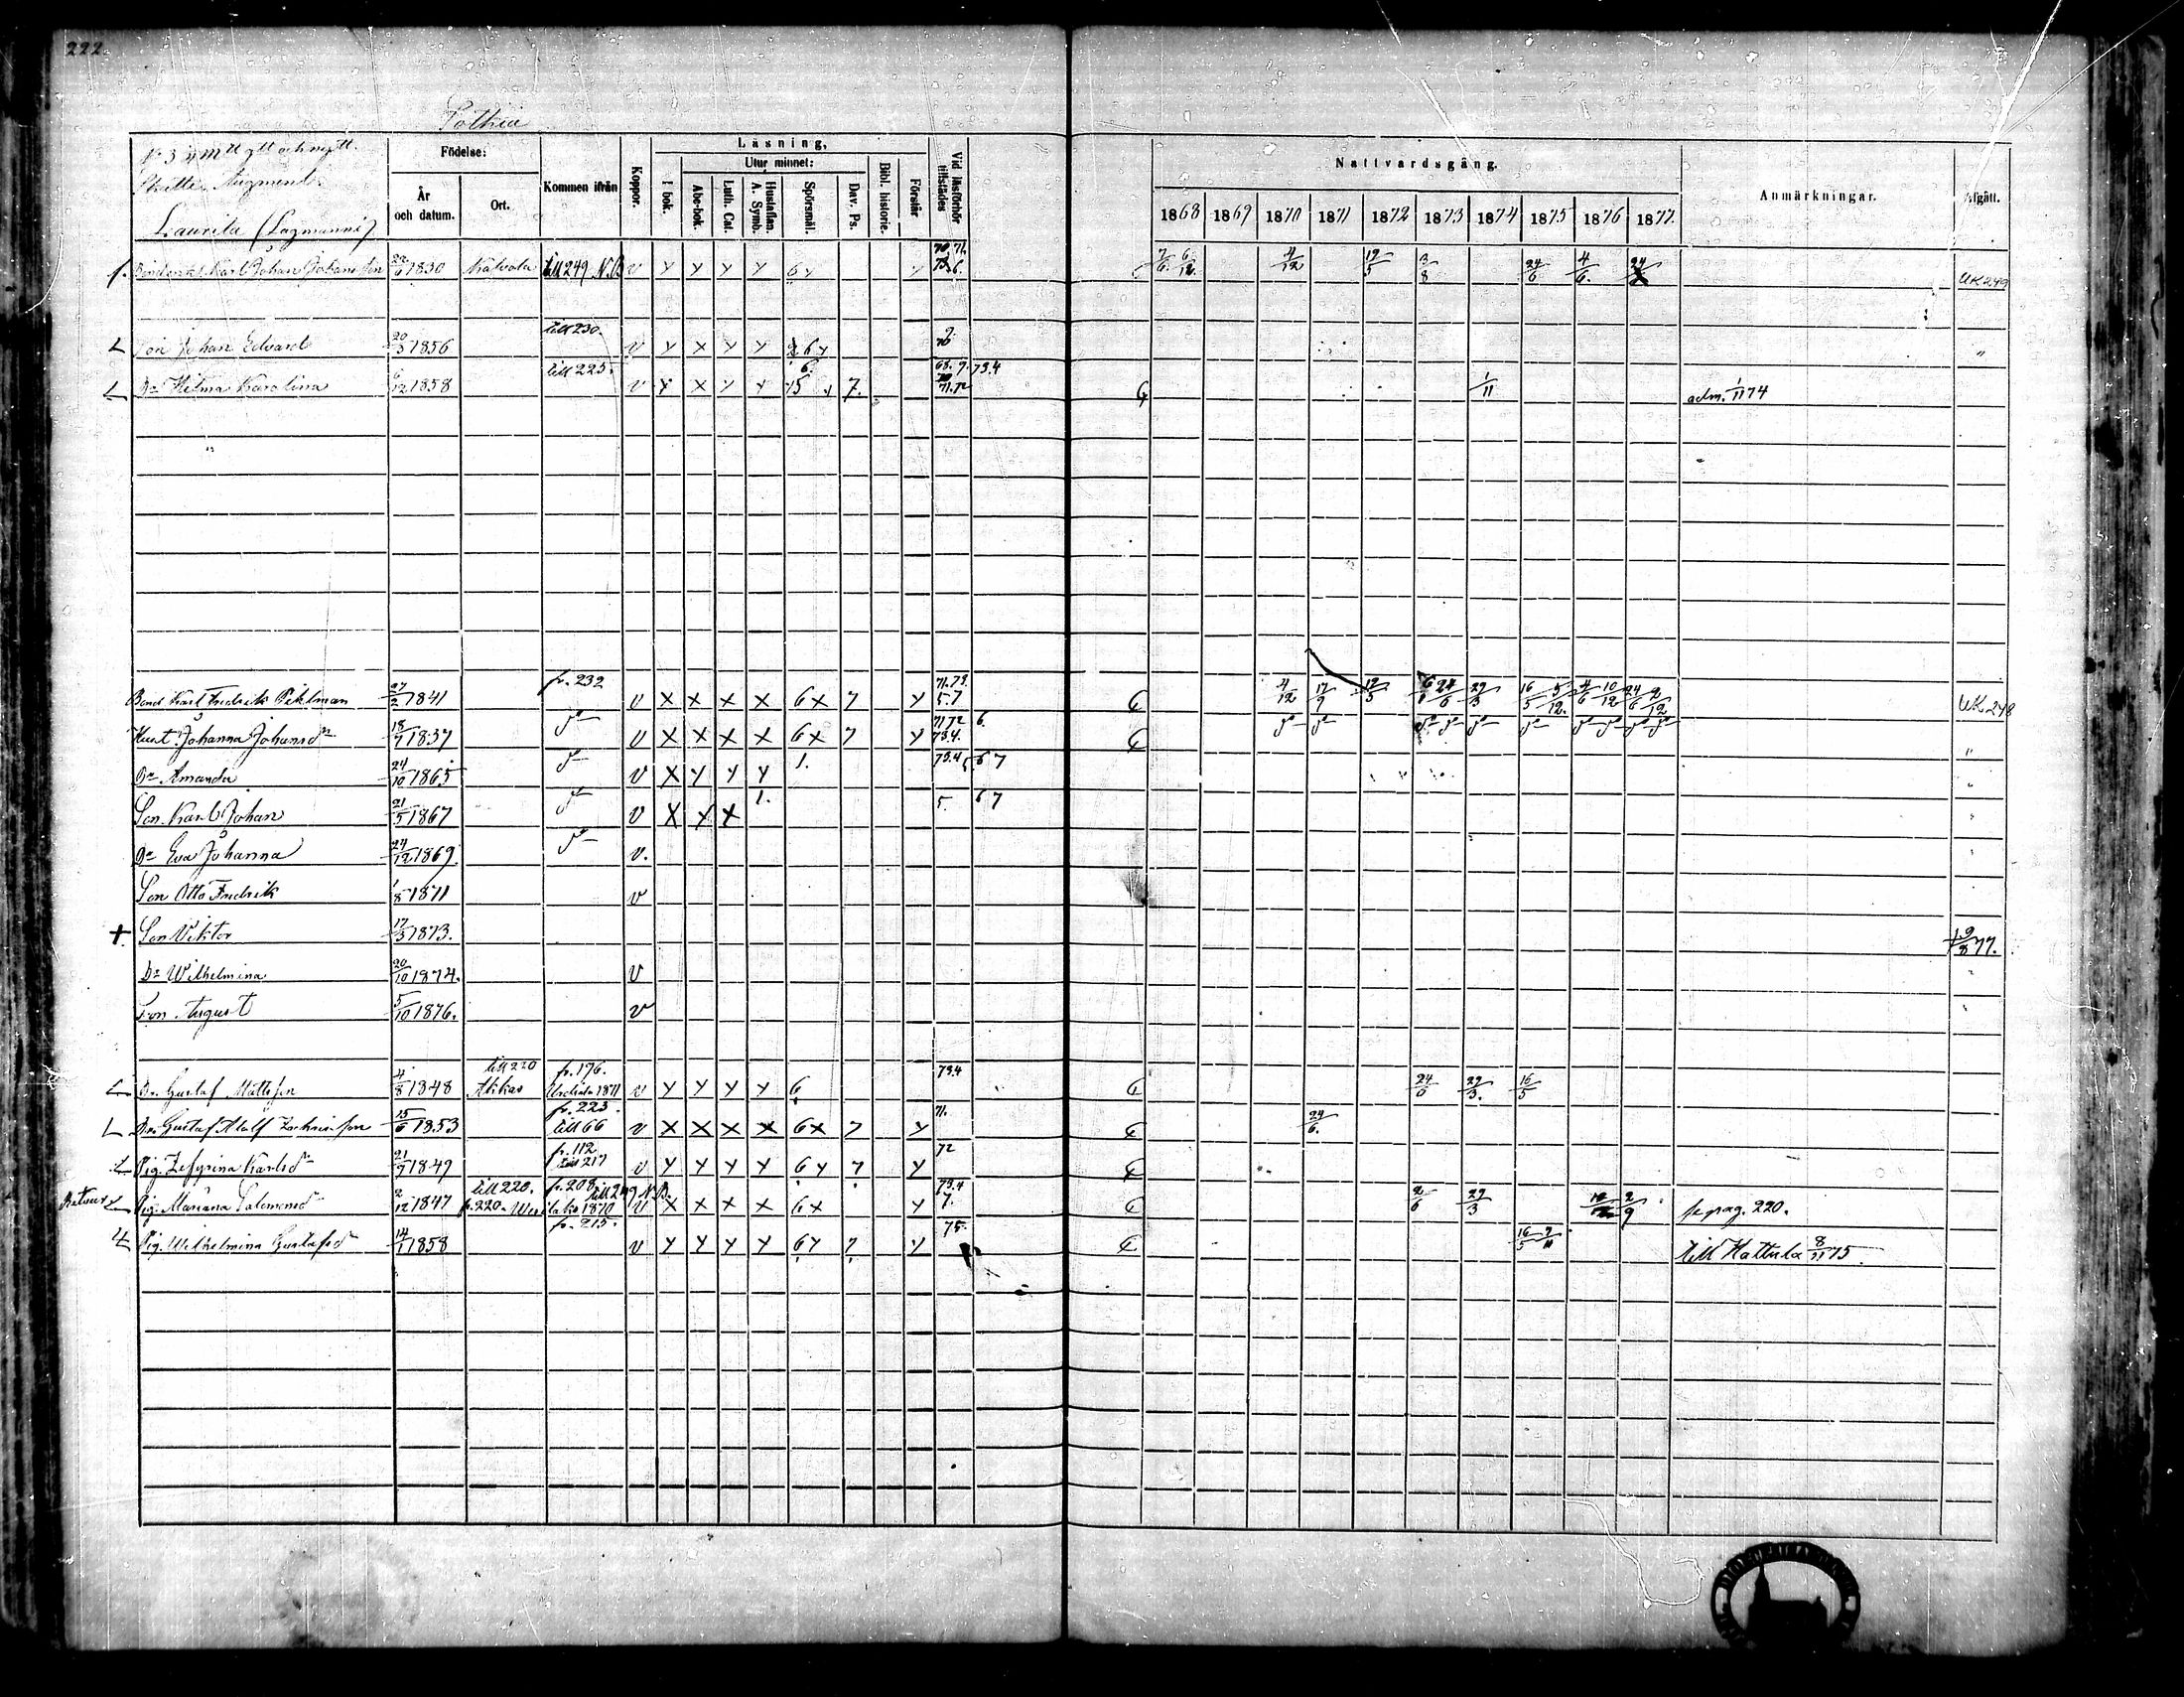 222
Sothia
N:o 3 mtl gtt och nytt.
Skatte Augment.
Laurila (Lagmanni)
Födelse:
År och datum.
Ort.
Kommen ifrån
Koppor.
Läsning,
I bok.
Utur minnet:
Abc-bok.
Luth. Cat.
Hustaflan. A. Symb.
Spörsmål.
Dav. Ps.
Bibl. historie.
Förstår
Vid läsförhör tillstädes
Nattvardsgång.
1868 1869 1870 1871 1872 1873 1874 1875 1876 1877.
Anmärkningar.
Afgått.
Karl Johan Johansson 22/6 1830 Kalvola till 249 N.B v y y y y 6 y y 70. 71. 7/6. 6/12. 4/12 12/5 3/8 24/6 4/6. UK 249
till 230.
L Son Johan Edvard 20/3 1856 v y x y y 6 y "
till 225.
L Dr Helma Karolina 6/12 1858 v y x y y 15 y 7. 68. 7. 73.4 71.72 1/11 adm. 1/11 74
fr. 232
Bond. Karl Fredrik Pihlman 27/2 1841 v x x x x 6 x 7 y 71.73. 5.7 4/12 17/9 12/5 24/6 29/3 16/5 5/12. 4/6 10/12 24/6 2/12 UK 248
Hust. Johanna Johansdr 18/7 1837 v x x x x 6 x 7 y 71 72 6. 73.4. "
Dr Amanda 24/10 1865 v x y y y 1. 73.4 5. 6 7
Son Karl Johan 21/5 1867 v x y x 1. 5. 6 7
Dr Eva Johanna 24/12 1869. v.
Son Otto Fredrik 1/8 1871 v
+ Son Viktor 17/3 1873. + 9/8 77.
Dr Wilhelmina 20/10 1874. v
Son August 5/10 1876. v
till 220 fr. 176.
L Dr. Gustaf Mattsson 4/8 1848 Akkas Urdiala 1871 v y y y y 6 73.4 24/6 29/3. 16/5
fr. 223.
L Dr. Gustaf Adolf 15/6 1853 till 66 v x x x x 6 x 7 y 71. 24/6.
fr. 112
L Pig. Zefyrina Karlsdr 21/9 1849 till 217 v y y y y 6 y 7 y 72
till 220. fr. 208. till 249 N.B.
L Pig. Mariana Salomonsdr 2/12 1847 fr. 220. 1870 v x x x x 6 x y 73.4 7. 2/6 29/3 2/9 fr pag. 220.
fr. 215.
L Pig. Wilhelmina Gustafsdr 14/1 1858 v y y y y 6 y 7 y 75. 16/5 7/11 till Hattula 8/11 75.